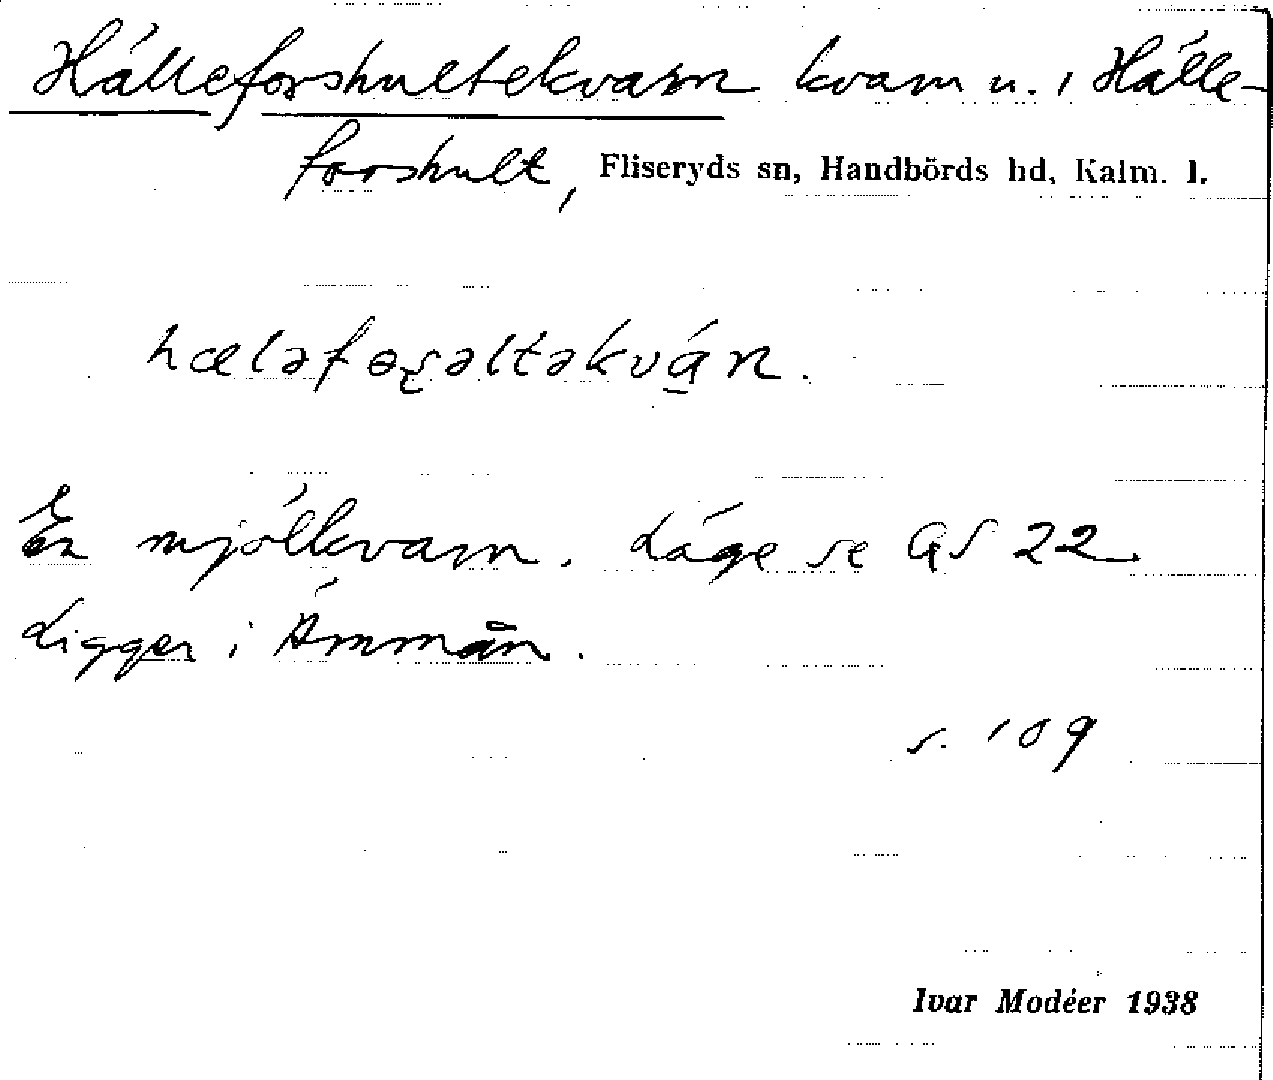 Hälleforshultekvarn kvarn u. i Hälle-
forshult, Fliseryds sn, Handbörds hd, Kalm. l.
hæləfɵʂəltəkván.
En mjölkvarn. Läge se GS 22
Ligger i Ämmån.
s. 109
Ivar Modéer 1938